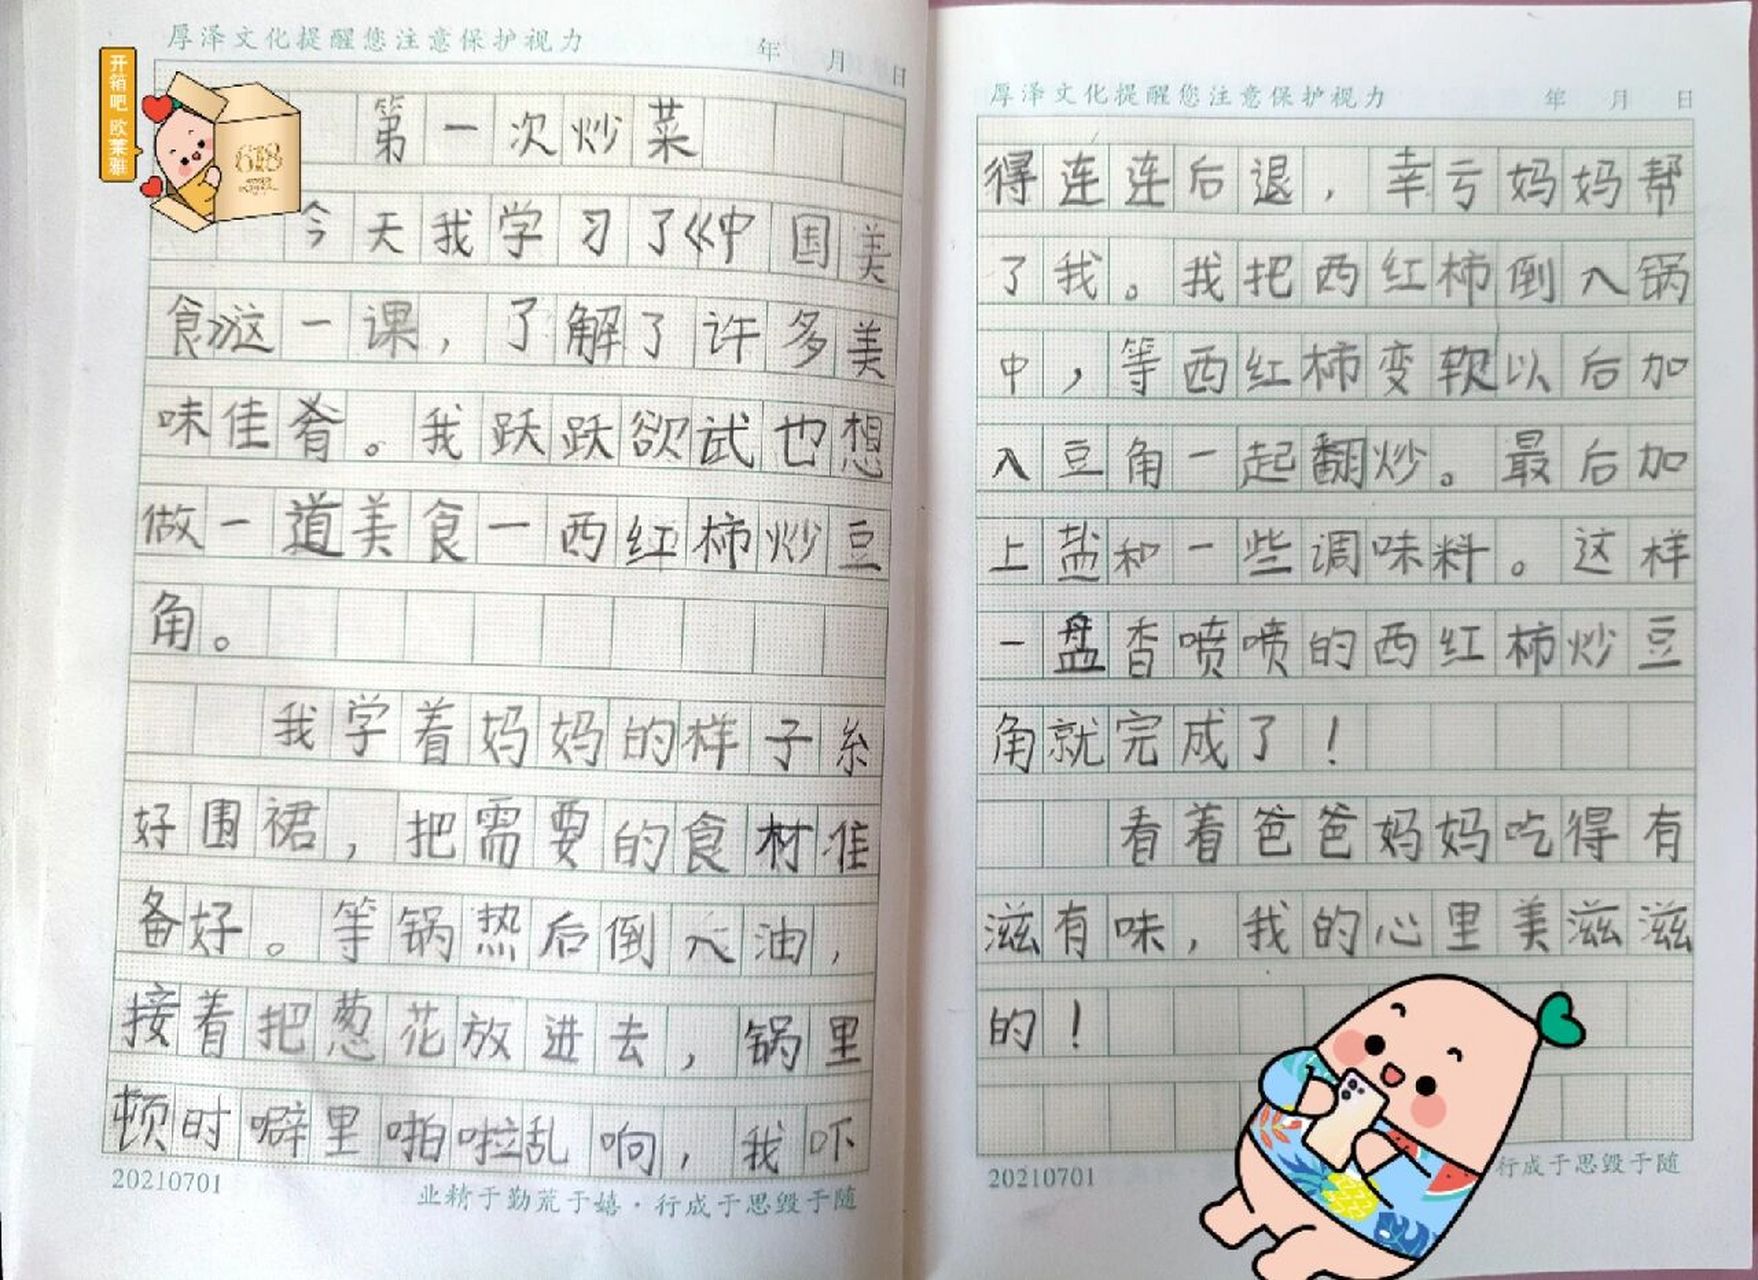 厚泽文化提醒您注意保护视力 年 月 日
开箱吧 欧莱雅
618
第一次炒菜
今天我学习了《中国美
食》这一课，了解了许多美
味佳肴。我跃跃欲试也想
做一道美食一西红柿炒豆
角。
我学着妈妈的样子系
好围裙，把需要的食材准
备好。等锅热后倒入油，
接着把葱花放进去，锅里
顿时噼里啪啦乱响，我吓
20210701
业精于勤荒于嬉·行成于思毁于随
厚泽文化提醒您注意保护视力 年 月 日
得连连后退，幸亏妈妈帮
了我。我把西红柿倒入锅
中，等西红柿变软以后加
入豆角一起翻炒。最后加
上盐和一些调味料。这样
一盘香喷喷的西红柿炒豆
角就完成了！
看着爸爸妈妈吃得有
滋有味，我的心里美滋滋
的！
20210701
行成于思毁于随